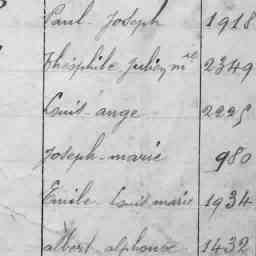 Paul-Joseph 1918
Théophile Julien m el 2349
Louis ange 2225
Joseph-marie 980
Emile Louis marie 1934
albert alphonse 1432